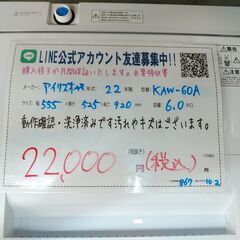 LINE公式アカウント友達募集中!!
購入後3か月間保証いたします。※要領収書
メーカー アイリスオーヤマ 年式: 22年製 型番 KAW-60A
サイズ: 幅 555 奥 525 高 920 mm 容量 6.0キロ
動作確認・洗浄済みです汚れやキズはございます。
22,000 円(税込)
(税抜き)
867 10.2